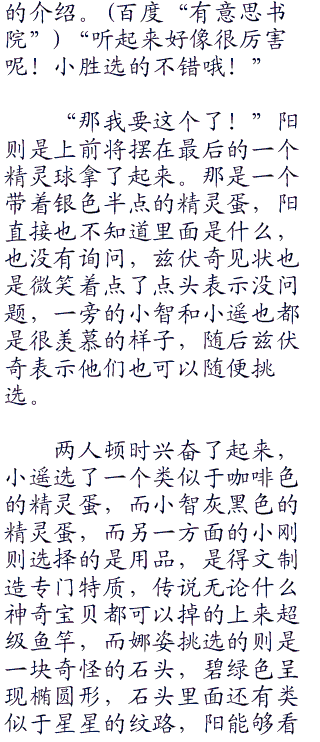 的介绍。(百度“有意思书
院”)“听起来好像很厉害
呢！小胜选的不错哦！”
“那我要这个了！”阳
则是上前将摆在最后的一个
精灵球拿了起来。那是一个
带着银色半点的精灵蛋，阳
直接也不知道里面是什么，
也没有询问，兹伏奇见状也
是微笑着点了点头表示没问
题，一旁的小智和小遥也都
是很羡慕的样子，随后兹伏
奇表示他们也可以随便挑
选。
两人顿时兴奋了起来，
小遥选了一个类似于咖啡色
的精灵蛋，而小智灰黑色的
精灵蛋，而另一方面的小刚
则选择的是用品，是得文制
造专门特质，传说无论什么
神奇宝贝都可以掉的上来超
级鱼竿，而娜姿挑选的则是
一块奇怪的石头，碧绿色呈
现椭圆形，石头里面还有类
似于星星的纹路，阳能够看